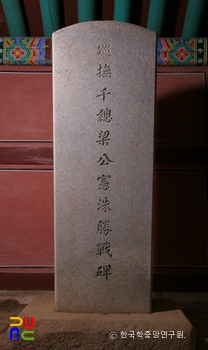 巡撫千總梁公憲洙勝戰碑
© 한국학중앙연구원